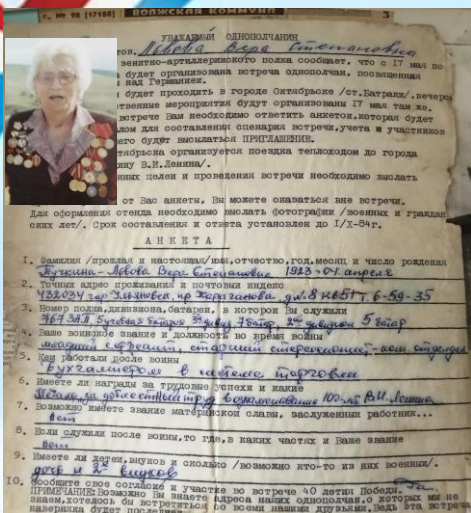 г., № 98 [17188] ВОЛЖСКАЯ КОММУНА 3
УВАЖАЕМЫЙ ОДНОПОЛЧАНИН
Львова Вера Степановна
зенитно-артиллерийского полка сообщает, что с 17 мая по
будет организована встреча однополчан, посвященная
над Германией.
будет проходить в городе Октябрьске /ст.Батраки/.вечером
мероприятия будут организованы 17 мая там же.
встрече Вам необходимо ответить анкетой,которая будет
для составления сценария встречи,учета участников
его будет высылаться ПРИГЛАШЕНИЕ.
организуется поездка теплоходом до города
В.И.Ленина/.
целей и проведения встречи необходимо выслать
от Вас анкеты, Вы можете оказаться вне встречи.
Для оформления стенда необходимо выслать фотографии /военных и граждан
ских лет/. Срок составления и ответа установлен до I/X-84г.
АНКЕТА
1. Фамилия /прошлая и настоящая/имя,отчество,год,месяц и число рождения
Львова Вера Степановна 1923 - 04. апреля
2. Точный адрес проживания и почтовый индекс
432034 гор Ульяновск, пр Хо д.№8 кв 51 Т. 6-59-35
3. Номер полка,дивизиона,батареи, в которой Вы служили
батарея дивиз. 5 батар
4. Ваше воинское звание и должность во время войны
младший старший отделен
5. Кем работали после войны
Бухгалтером в системе торговли
6. Имеете ли награды за трудовые успехи и какие
Медаль за доблестный труд в ознаменование 100-лет В.И. Ленина
7. Возможно имеете звание материнской славы, заслуженный работник...
Нет
8. Если служили после войны,то где,в каких частях и Ваше звание
Нет
9. Имеете ли детей,внуков и сколько /возможно кто-то из них военный/.
дочь и 2е внуков
10. Сообщите свое согласие и участие во встрече 40 летия Победы. Да.
ПРИМЕЧАНИЕ:Возможно Вы знаете адреса наших однополчан,о которых мы не
знаем,хотелось бы встретиться со всеми нашими друзьями.Ведь эта встреча
наверняка будет